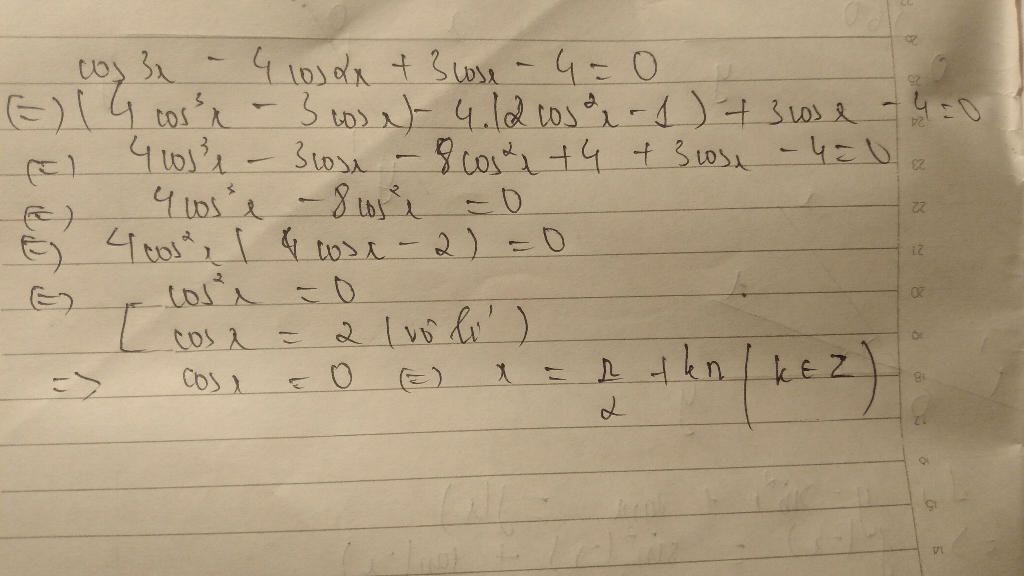 cos 3x - 4 cos2x + 3 cosx - 4 = 0
(=) ( 4 cos³x - 3 cos x) - 4.(2 cos²x - 1 ) + 3 cos x - 4 = 0
(=) 4 cos³x - 3 cosx - 8 cos²x + 4 + 3 cosx - 4 = 0
(=) 4 cos³x - 8 cos²x = 0
(=) 4 cos²x ( 4 cosx - 2 ) = 0
(=) [ cos²x = 0
cos x = 2 ( vô lí )
=> cos x = 0 (=) x = π/2 + kπ ( k ∈ Z )
26
25
24
23
22
21
20
19
18
17
16
15
14